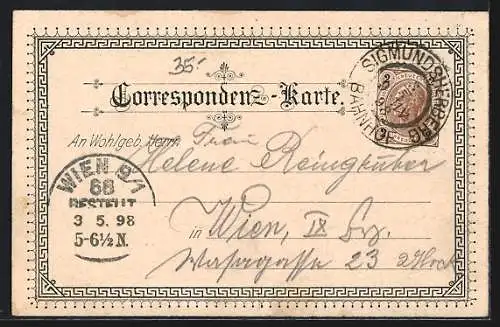 35.-
SIGMUNDSHERBERG
BAHNHOF
Correspondenz-Karte.
An Wohlgeb. Herrn Frau
Helene Reingruber
WIEN 9/1
88
BESTELLT
3 5. 98
5-6½ N.
in Wien, IX Bez.
Wasagasse 23 2 Stock